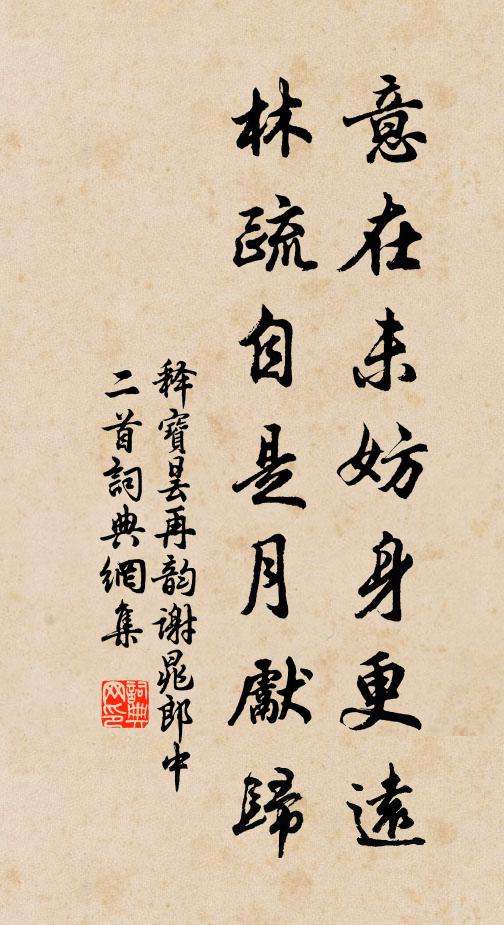 意在未妨身更遠
林疏自是月獻歸
释寶昙再韵谢晁郎中
二首詞典網集
詞典
网印